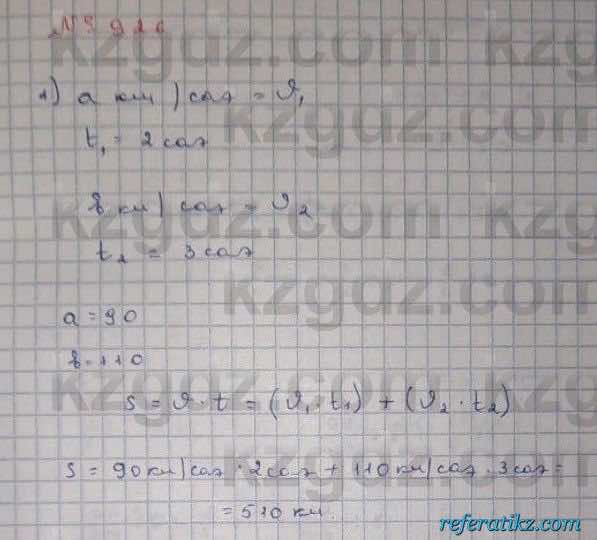 № 926
1) a км/сағ = ϑ₁
t₁ = 2 сағ
b км/сағ = ϑ₂
t₂ = 3 сағ
a = 90
b = 110
S = ϑ · t = (ϑ₁ · t₁) + (ϑ₂ · t₂)
S = 90 км/сағ · 2 сағ + 110 км/сағ · 3 сағ =
= 510 км.
kzgdz.com
referatikz.com